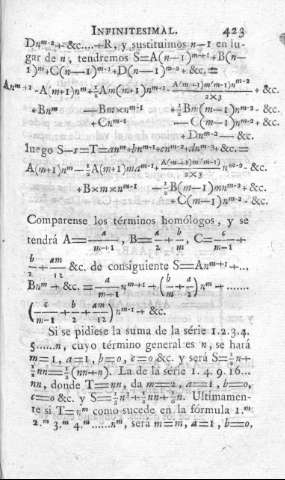 INFINITESIMAL. 423
Dn^{m-2}+&c....+R, y sustituimos n-1 en lu-
gar de n, tendremos S=A(n-1)^{m+1}+B(n-
1)^m+C(n-1)^{m-1}+D(n-1)^{m-2}+&c.=
An^{m+1}-A(m+1)n^m+\frac{1}{2}Am(m+1)n^{m-1}-\frac{A(m+1)m(m-1)n^{m-2}}{2×3}+&c.
+Bn^m —Bm×n^{m-1} +\frac{1}{2}Bn^m(m-1)n^{m-2}+&c.
+Cn^{m-1} —C(m-1)n^{m-2}+&c.
+Dn^{m-2}—&c.
luego S-s=T=an^m+bn^{m-1}+cn^{m-2}+dn^{m-3}+&c.=
A(m+1)n^m-\frac{1}{2}A(m+1)mn^{m-1}+\frac{A(m+1)m(m-1)}{2×3}n^{m-2}-&c.
+B×m×n^{m-1} -\frac{1}{2}B(m-1)mn^{m-2}+&c.
+C(m-1)n^{m-2}-&c.
Comparense los términos homólogos, y se
tendrá A=\frac{a}{m+1}, B=\frac{a}{2}+\frac{b}{m}, C=\frac{c}{m-1}+
\frac{b}{2}+\frac{am}{12} &c. de consiguiente S=An^{m+1}+...
Bn^m+&c.=\frac{a}{m-1}n^{m+1}+(\frac{b}{m}+\frac{a}{2})n^m+.......
(\frac{c}{m-1}+\frac{b}{2}+\frac{am}{12})n^{m-1}+&c.
Si se pidiese la suma de la série 1.2.3.4.
5......n, cuyo término general es n, se hará
m=1, a=1, b=0, c=0 &c. y será S=\frac{1}{2}n+
\frac{1}{2}nn=\frac{1}{2}(nn+n). La de la série 1. 4. 9. 16...
nn, donde T=nn, da m=2, a=1, b=0,
c=0 &c. y S=\frac{1}{3}n^3+\frac{1}{2}nn+\frac{1}{6}n. Ultimamen-
te si T=n^m como sucede en la fórmula 1.^m
2.^m 3.^m 4.^m......n^m, será m=m, a=1, b=0,